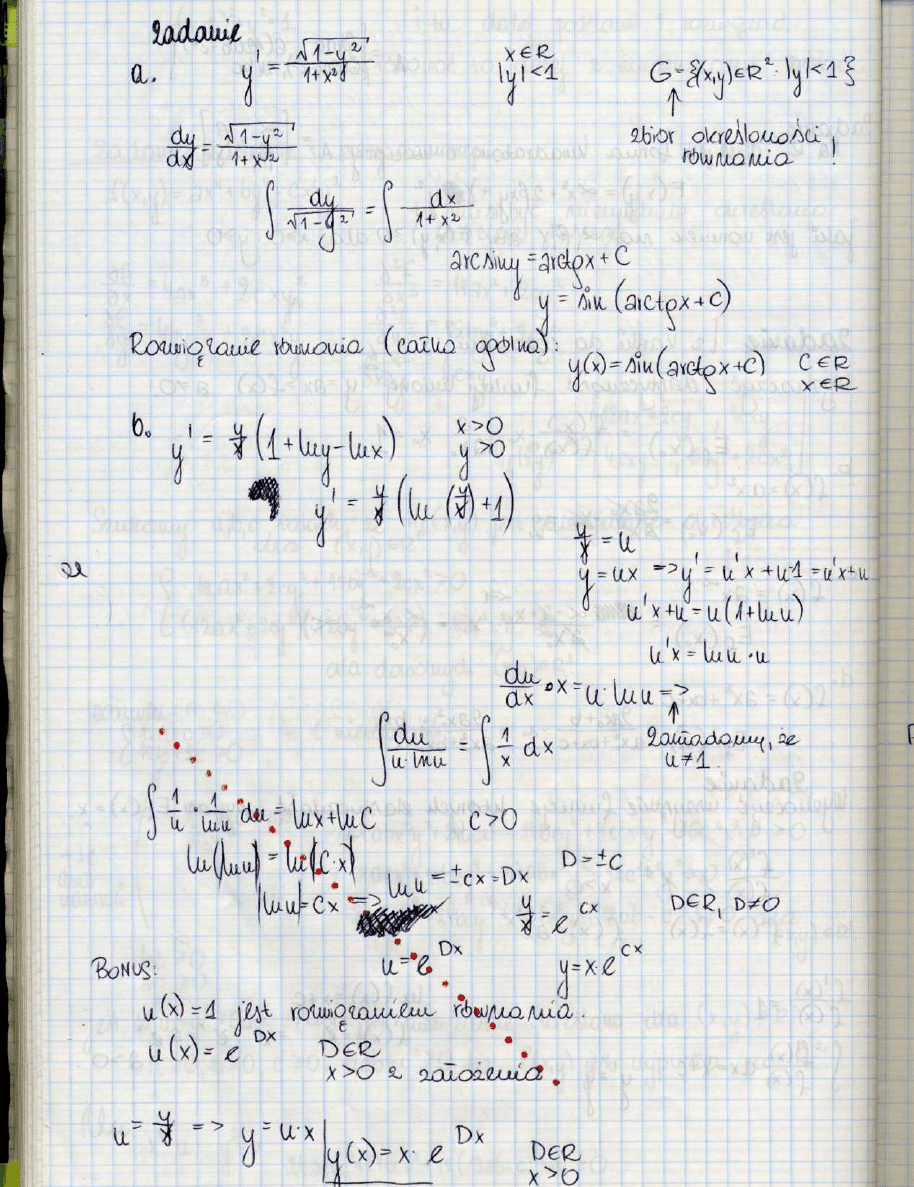 Zadanie
a. y' = √(1-y²) / (1+x²)    x∈R    |y|<1    G={(x,y)∈R²: |y|<1}
↑
zbiór określoności równania!
dy/dx = √(1-y²) / (1+x²)
∫ dy/√(1-y²) = ∫ dx/(1+x²)
arcsiny = arctgx + C
y = sin (arctgx + C)
Rozwiązanie równania (całka ogólna):
y(x) = sin(arctgx+C)    C∈R    x∈R
b. y' = y/x (1+lny-lnx)    x>0    y>0
y' = y/x (ln (y/x) +1)
y/x = u
że
y = ux => y' = u'x + u·1 = u'x+u
u'x+u = u(1+lnu)
u'x = lnu · u
du/dx · x = u·lnu =>
↑
zakładamy, że u≠1.
∫ du/(u·lnu) = ∫ 1/x dx
∫ 1/u · 1/lnu du = lnx + lnC    C>0
ln|lnu| = ln|C·x|
|lnu| = Cx => lnu = ±cx = Dx    D=±C
y/x = e^{Cx}    D∈R, D≠0
u = e^{Dx}    y = x·e^{Cx}
BONUS:
u(x) = 1 jest rozwiązaniem równania.
u(x) = e^{Dx}    D∈R
x>0 z założenia
u = y/x => y = u·x | y(x) = x·e^{Dx}    D∈R
x>0